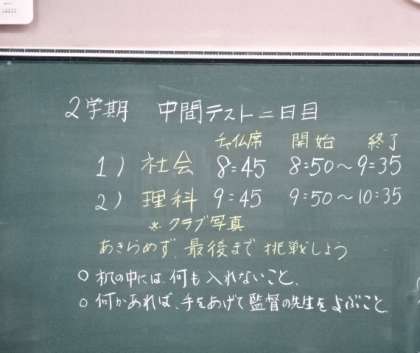 2学期 中間テスト二日目
着席 開始 終了
1) 社会 8:45 8:50～9:35
2) 理科 9:45 9:50～10:35
※クラブ写真
あきらめず 最後まで 挑戦しよう
○ 机の中には、何も入れないこと、
○ 何かあれば、手をあげて監督の先生をよぶこと